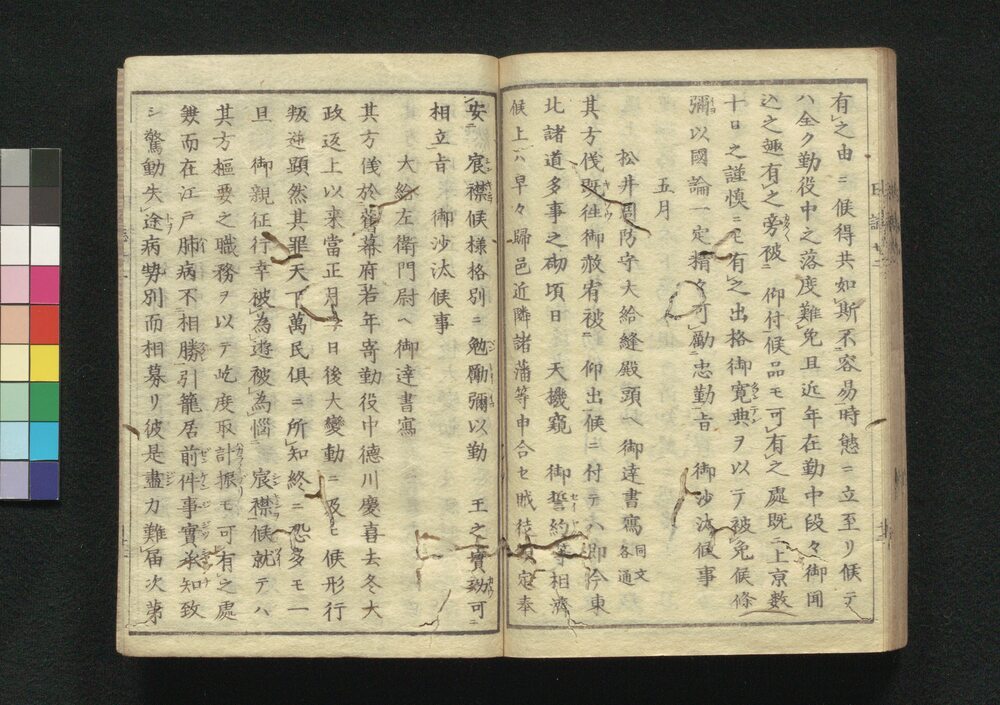 有之由ニ候得共如斯不容易時態ニ立至リ候テ
ハ全ク勤役中之落度難免且近年在勤中段々御聞
込之趣有之旁被 仰付候品モ可有之處既ニ上京數
十日之謹慎ニモ有之出格御寛典ヲ以テ被免候條
彌以國論一定精々可勵忠勤旨 御沙汰候事
五月
松井周防守大給縫殿頭ヘ御達書寫 同文各通
其方儀既往御赦宥被 仰出候ニ付テハ即今東
北諸道多事之砌頃日 天機窺 御誓約等相濟
候上ハ早々歸邑近隣諸藩等申合セ賊徒 定奉
安 宸襟候樣格別ニ勉勵彌以勤 王之實効可
相立旨 御沙汰候事
大給左衛門尉ヘ御達書寫
其方儀於舊幕府若年寄勤役中德川慶喜去冬大
政返上以来當正月 日後大變動ニ及ヒ候形行
叛逆顯然其罪天下萬民俱ニ所知終ニ恐多モ一
旦 御親征行幸被為遊被為惱 宸襟候就テハ
其方樞要之職務ヲ以テ屹度取計振モ可有之處
無而在江戸肺病不相勝引籠居前件事實承知致
シ驚動失途病勢別而相募リ彼是盡力難届次第